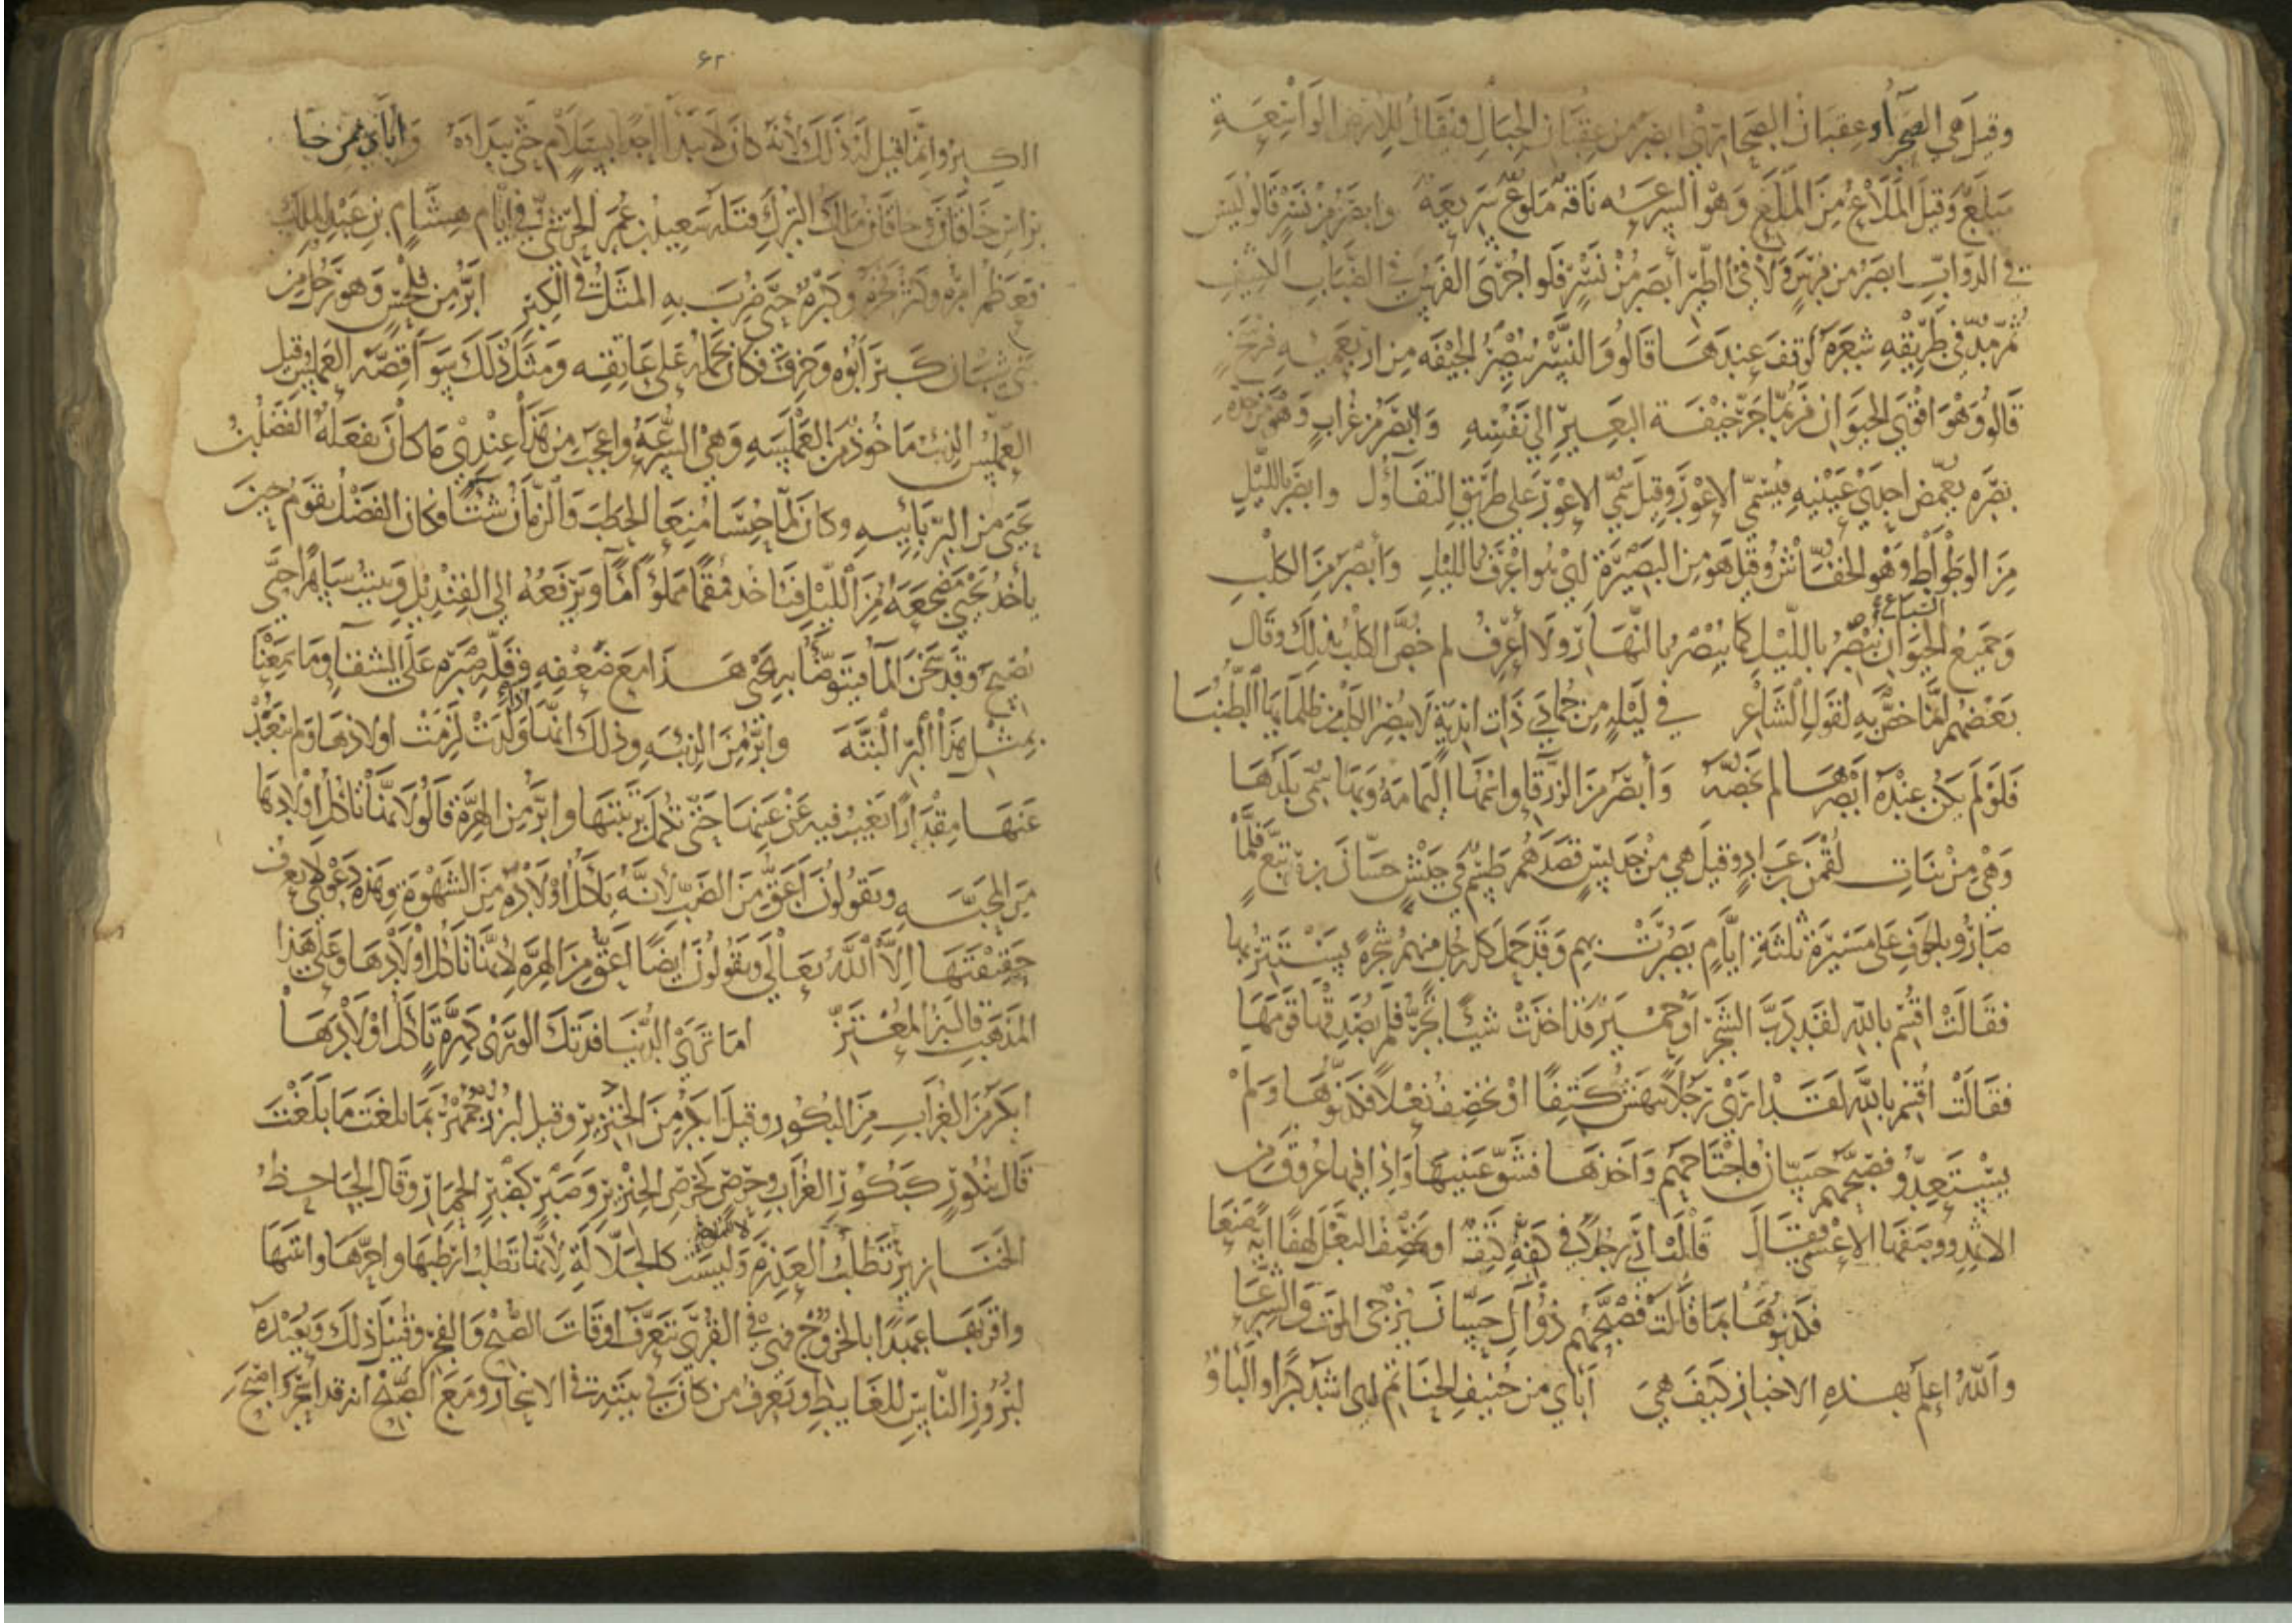 وقيل هي الصحراء وعقبان الصحارى ابصر من عقبان الجبال ويقال للارض الواسعة
ميلع وقيل الملاع من الملع وهو السرعه ناقه ملوع سريعه وابصر من نسر قالو ليس
في الدواب ابصر من فرس ولا في الطير أبصر من نسر فلو اجرى الفرس في الضباب الاشيف
ثم مد في طريقه شعره لوقف عندها قالو والنسر يبصر الجيفه من اربعميه فرسخ
قالو وهو اقوى الحيوان فربما جر جيفة البعير الي نفسه وابصر من غراب وهو من حدة
بصره يغمض احدي عينيه فيسمى الاعور وقيل سمي الاعور علي طريق التفاؤل وابصر بالليل
من الوطواط وهو الخفاش وقيل هو من البصيرة اي هو اعرف بالليل وأبصر من الكلب
السباع
وجميع الحيوان تبصر بالليل كما يبصر بالنهار ولا أعرف لم خص الكلب بذلك وقال
بعضهم انما خص به لقول الشاعر في ليله من جمادي ذات اندية لا يبصر الكلب من ظلمايها الطنبا
فلو لم يكن عنده ابصرها لم يخصه وأبصر من الزرقا واسمها اليمامه وبها سمي بلدها
وهي من بنات لقمن بن عاد وقيل هي من جديس قصدهم طسم في جيش حسان بن تبع فلما
صارو بالجو في علي مسيرة ثلثة ايام بصرت بهم وقد حمل كل رجل منهم شجرة يستتر بها
فقالت اقسم بالله لقد دب الشجر او حمير قد اخذت شيئا تجر فلم يصدقها قومها
فقالت اقسم بالله لقد ارى رجلا ينهش كتفا او يخصف نعلا فكذبوها ولم
يستعدو فصبحهم حسان فاجتاحهم واخذها فشق عينيها واذا فيها عروق من
الاثمد ووصفها الاعشي فقال قالت اري رجلا في كفه كتف او يخصف النعل لهفا اية صنعا
فكذبوها بما قالت فصبحهم ذو آل حسان يزجى الموت والشرعا
والله اعلم بهذه الاخبار كيف هي أبأي من حنيف الحناتم اي اشد كبرا والبأو
٦٢
الكبر وانما قيل له ذلك لأنه كان لا يبدأ احدا بسلام حتى يبداه وأبأي ممن جا
براس خاقان وخاقان مالك الترك قتله سعيد بن عمر الحرشي في ايام هشام بن عبد الملك
فعظم امره وكثر فخره وكبره حتى ضرب به المثل في الكبر ابر من فلحس وهو رجل من
بني شيبان كبر أبوه وخرف فكان يحمله على عاتقه ومثل ذلك سوآ قصة العملس وقيل
العملس الذئب ماخوذ من العملسه وهي السرعه واعجب من هذا عندي ما كان يفعله الفضل بن
يحيى من البر بابيه وكان لما حبسا منعا الحطب والزمان شتا وكان الفضل يقوم حين
ياخذ يحيي مضجعه من الليل فياخذ قمقما مملوا ما ويرفعه الي القنديل ويبيت ساهرا حتى
يصبح وقد سخن الما فيتوضا به يحيى هذا مع ضعفه وقلة صبره علي الشقا وما سمعنا
بمثل هذا البر البتة وابر من الذئبه وذلك انها اذا ولدت لزمت اولادها ولم تبعد
عنها مقدارا تغيب فيه عن عينها حتى تكمل تربيتها وابر من الهرة قالو لانها تاكل اولادها
من المحبه ويقولون اعق من الضب لانه ياكل اولاده من الشهوة وهذه دعوى لا يعرف
حقيقتها الا الله تعالي ويقولون ايضا اعق من الهرة لانها تاكل اولادها وعلى هذا
المذهب قال ابن المعتز اما ترى الدنيا فدتك الورى كهرة تأكل اولادها
ابكر من الغراب من البكور وقيل ابكر من الخنزير وقيل لبزرجمهر بما بلغت ما بلغت
قال ببكور كبكور الغراب وحرص كحرص الخنزير وصبر كصبر الحمار وقال الجاحظ
الخنازير تطلب العذرة وليست كالجلالة لأنها تطلب ارطبها واحرها وانتنها
واقربها عهدا بالخروج فهي في القرى تعرف اوقات الصبح والفجر وقبل ذلك وبعده
لبروز الناس للغايط ويعرف من كان في بيته في الاسحار ومع الصبح انه قد أسحر واصبح